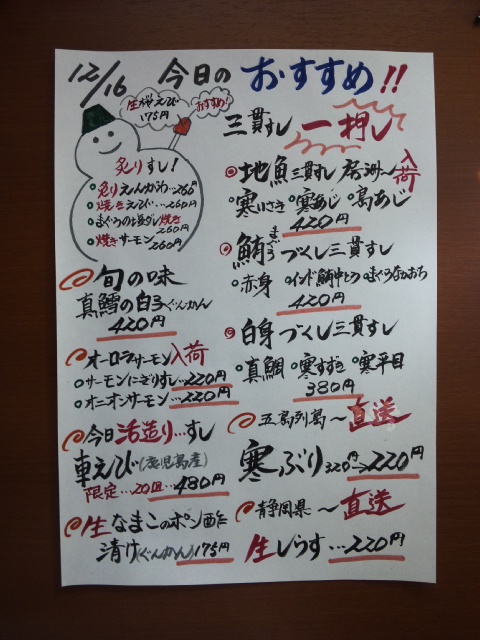 12/16 今日の おすすめ!!
生桜えび
175円
おすすめ!
炙りすし!
炙りえんがわ…260円
焼きえび…260円
まぐろのねぎダレ焼き
260円
焼きサーモン
260円
旬の味
真鱈の白子ぐんかん
420円
オーロラサーモン入荷
サーモンにぎりすし…220円
オニオンサーモン…220円
今日活造り…すし
車えび(鹿児島産)
限定…20皿…480円
生なまこのポン酢
漬け(ぐんかん)175円
三貫すし 一押し
地魚三貫すし 房州〜入荷
寒いさき 寒あじ 島あじ
420円
鮪づくし三貫すし
まぐろ
赤身 インド鮪中とろ まぐろなかおち
420円
白身づくし三貫すし
真鯛 寒すずき 寒平目
380円
五島列島〜直送
寒ぶり 320円→220円
静岡県〜直送
生しらす…220円